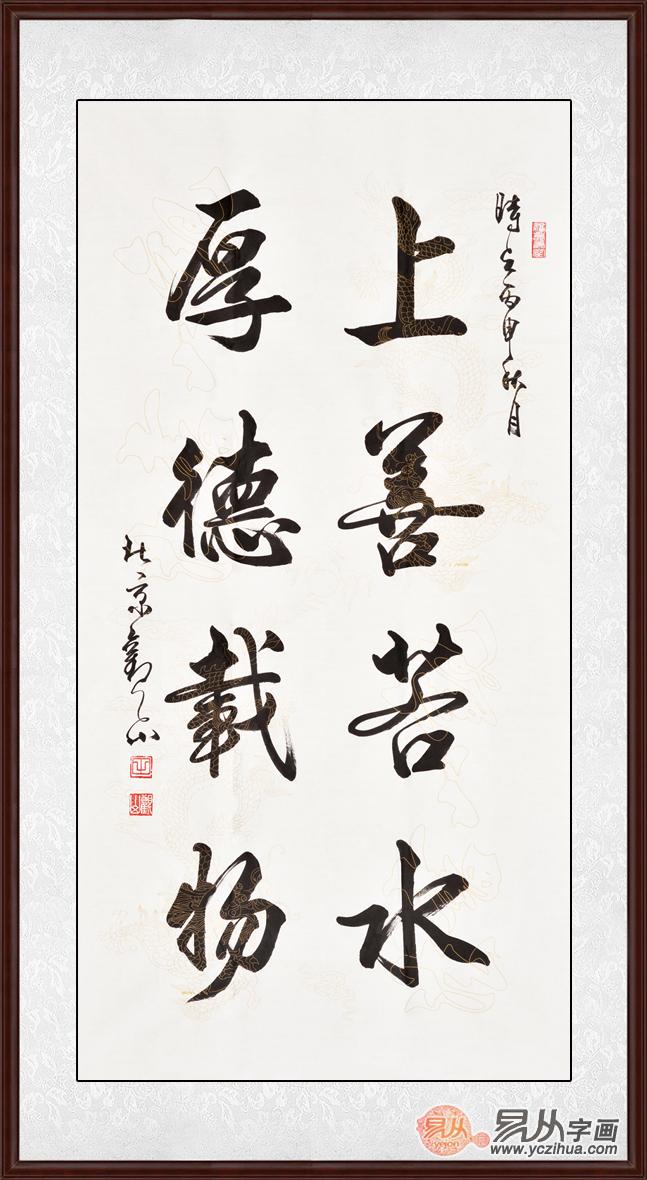 時在丙申秋月
上善若水
厚德載物
京
易从
易从字画
www.yczihua.com